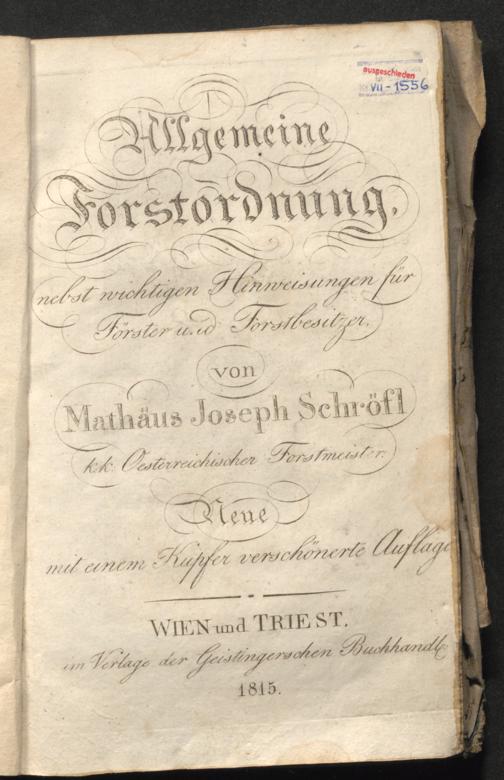 ausgeschieden
VII - 1556
Allgemeine
Forstordnung,
nebst wichtigen Hinweisungen für
Förster und Forstbesitzer,
von
Mathäus Joseph Schröfl
k:k: Oesterreichischer Forstmeister.
Neue
mit einem Kupfer verschönerte Auflage
WIEN und TRIEST.
im Verlage der Geistingerschen Buchhandlg
1815.